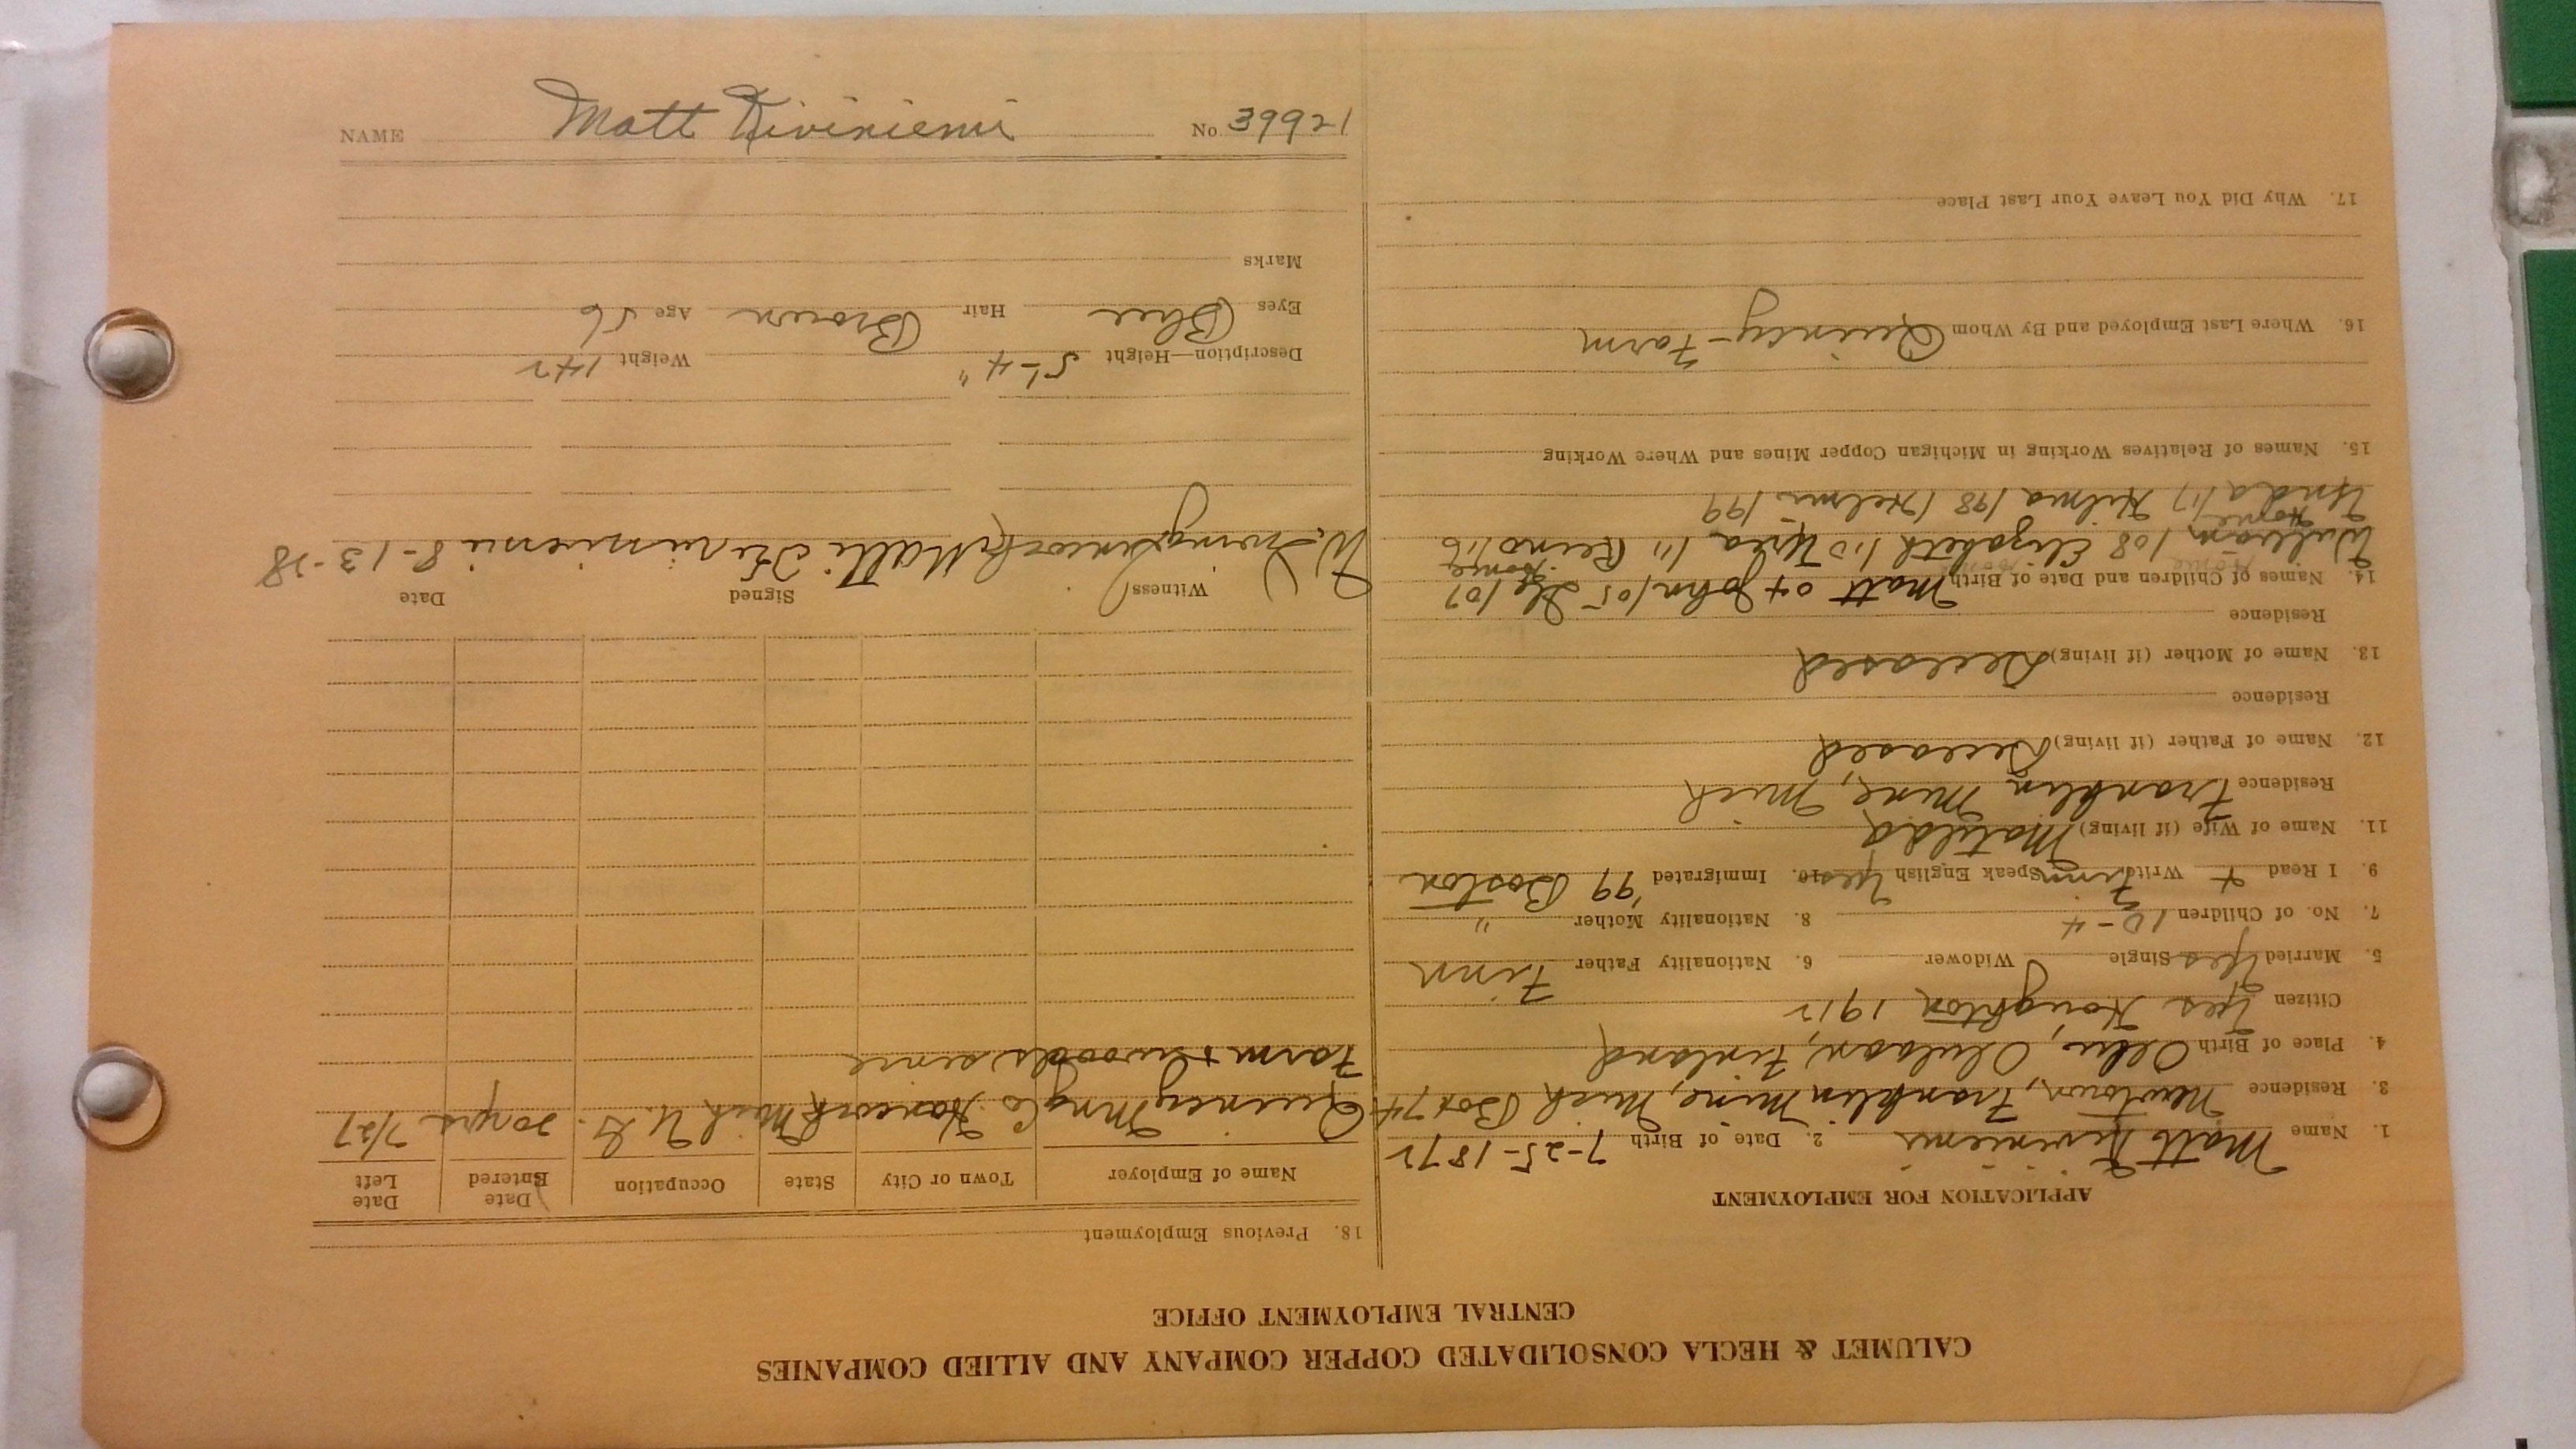 CALUMET & HECLA CONSOLIDATED COPPER COMPANY AND ALLIED COMPANIES
CENTRAL EMPLOYMENT OFFICE
APPLICATION FOR EMPLOYMENT
1. Name Matt Kiviniemi 2. Date of Birth 7-25-1872
3. Residence Newtown, Franklin Mine, Mich Box 74
4. Place of Birth Oulu, Finland
Citizen Yes Houghton 1912
5. Married Yes Single Widower 6. Nationality Father Finn
7. No. of Children 10-4 8. Nationality Mother "
9. I Read + Write Finn Speak English Yes 10. Immigrated '99 Boston
11. Name of Wife (if living) Matilda
Residence Franklin Mine, Mich
12. Name of Father (if living) Deceased
Residence
13. Name of Mother (if living) Deceased
Residence
14. Names of Children and Date of Birth Matt 04 John/05 /07
Home
William/08 Elizabeth/10 /11 Reino/16
Home
/17 Hilma/98 Helmi/99
15. Names of Relatives Working in Michigan Copper Mines and Where Working
16. Where Last Employed and By Whom Quincy - Farm
17. Why Did You Leave Your Last Place
18. Previous Employment
Name of Employer Town or City State Occupation Date Entered Date Left
Quincy Mng Co Hancock Mich U.G. 20 yrs 7/27
Farm & woods since
Witness Signed Date
8-13-28
Description—Height 5'-4" Weight 142
Eyes Blue Hair Brown Age 56
Marks
NAME Matt Kiviniemi No 39921